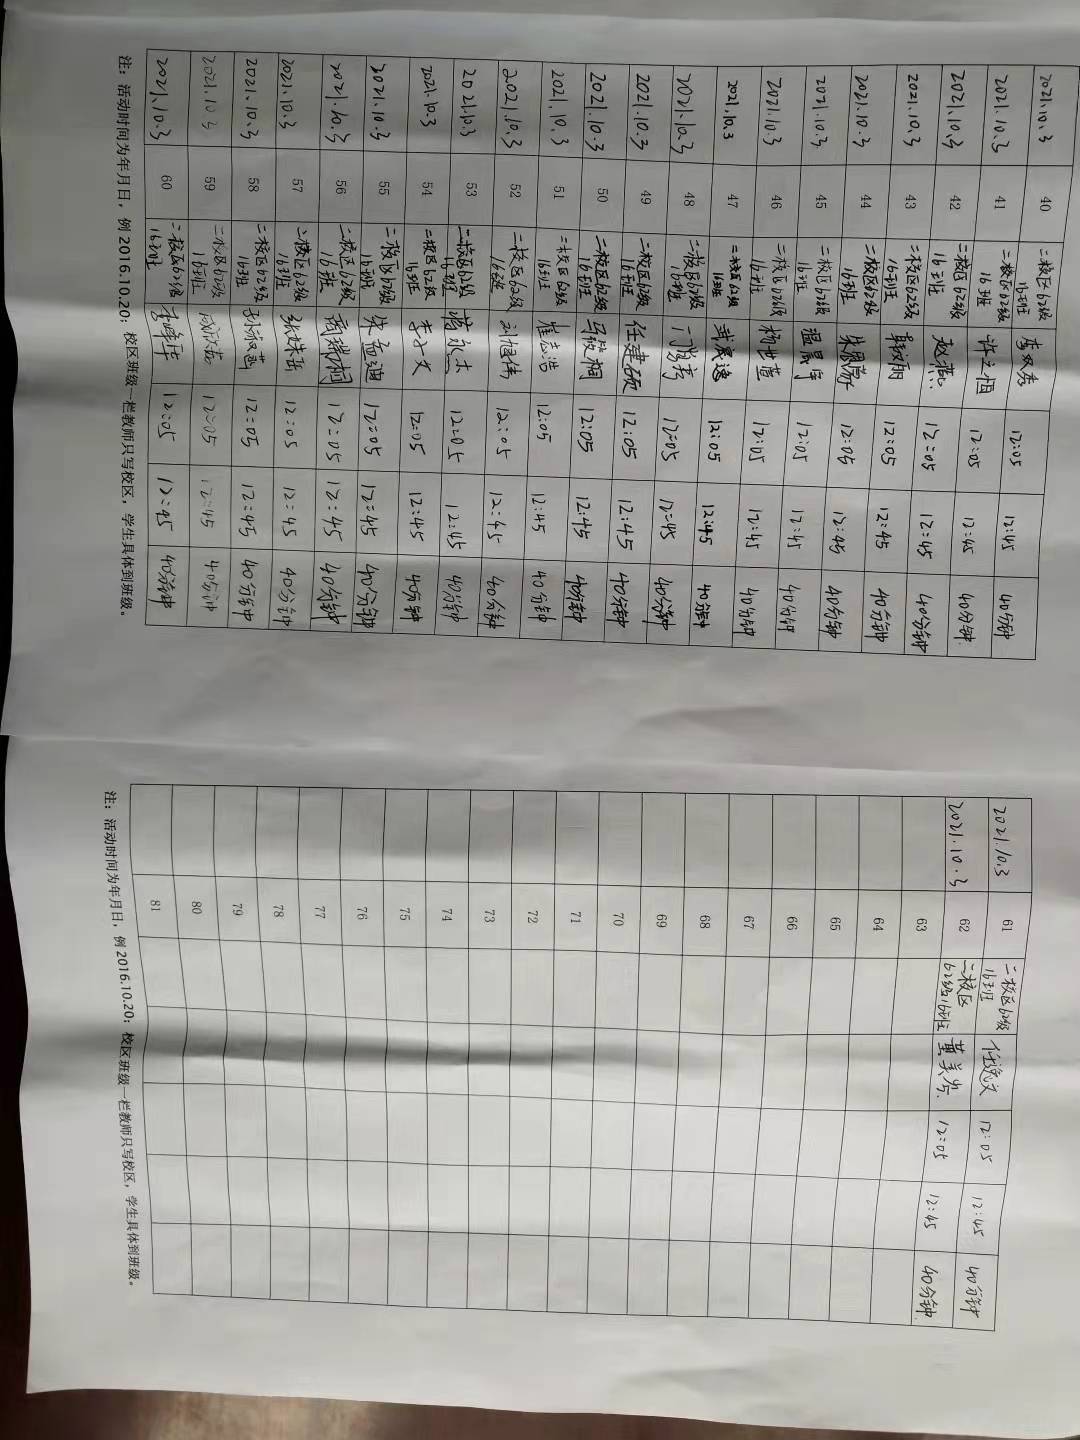 2021.10.3 40 二校区62级16班 李双秀 12:05 12:45 40分钟
2021.10.3 41 二校区62级16班 许立恒 12:05 12:45 40分钟
2021.10.3 42 二校区62级16班 赵燕 12:05 12:45 40分钟
2021.10.3 43 二校区62级16班 12:05 12:45 40分钟
2021.10.3 44 二校区62级16班 12:05 12:45 40分钟
2021.10.3 45 二校区62级16班 温昌宇 12:05 12:45 40分钟
2021.10.3 46 二校区62级16班 杨世萱 12:05 12:45 40分钟
2021.10.3 47 二校区62级16班 12:05 12:45 40分钟
2021.10.3 48 二校区62级16班 12:05 12:45 40分钟
2021.10.3 49 二校区62级16班 任建硕 12:05 12:45 40分钟
2021.10.3 50 二校区62级16班 12:05 12:45 40分钟
2021.10.3 51 二校区62级16班 崔志浩 12:05 12:45 40分钟
2021.10.3 52 二校区62级16班 刘恒伟 12:05 12:45 40分钟
2021.10.3 53 二校区62级16班 12:05 12:45 40分钟
2021.10.3 54 二校区62级16班 12:05 12:45 40分钟
2021.10.3 55 二校区62级16班 朱孟迪 12:05 12:45 40分钟
2021.10.3 56 二校区62级16班 12:05 12:45 40分钟
2021.10.3 57 二校区62级16班 12:05 12:45 40分钟
2021.10.3 58 二校区62级16班 12:05 12:45 40分钟
2021.10.3 59 二校区62级16班 12:05 12:45 40分钟
2021.10.3 60 二校区62级16班 12:05 12:45 40分钟
注：活动时间为年月日，例 2016.10.20；校区班级一栏教师只写校区，学生具体到班级。
2021.10.3 61 二校区62级16班 12:05 12:45 40分钟
2021.10.3 62 二校区62级16班 12:05 12:45 40分钟
63
64
65
66
67
68
69
70
71
72
73
74
75
76
77
78
79
80
81
注：活动时间为年月日，例 2016.10.20；校区班级一栏教师只写校区，学生具体到班级。